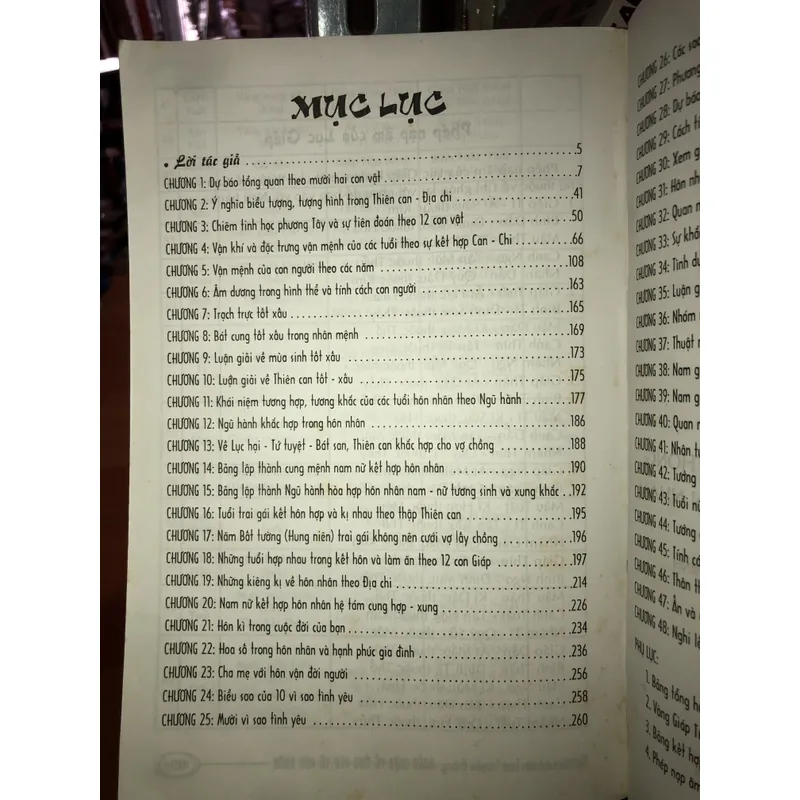 MỤC LỤC
• Lời tác giả ..... 5
CHƯƠNG 1: Dự báo tổng quan theo mười hai con vật ..... 7
CHƯƠNG 2: Ý nghĩa biểu tượng, tượng hình trong Thiên can - Địa chi ..... 41
CHƯƠNG 3: Chiêm tinh học phương Tây và sự tiên đoán theo 12 con vật ..... 50
CHƯƠNG 4: Vận khí và đặc trưng vận mệnh của các tuổi theo sự kết hợp Can - Chi ..... 66
CHƯƠNG 5: Vận mệnh của con người theo các năm ..... 108
CHƯƠNG 6: Âm dương trong hình thể và tính cách con người ..... 163
CHƯƠNG 7: Trạch trực tốt xấu ..... 165
CHƯƠNG 8: Bát cung tốt xấu trong nhân mệnh ..... 169
CHƯƠNG 9: Luận giải về mùa sinh tốt xấu ..... 173
CHƯƠNG 10: Luận giải về Thiên can tốt - xấu ..... 175
CHƯƠNG 11: Khái niệm tương hợp, tương khắc của các tuổi hôn nhân theo Ngũ hành ..... 177
CHƯƠNG 12: Ngũ hành khắc hợp trong hôn nhân ..... 186
CHƯƠNG 13: Về Lục hại - Tứ tuyệt - Bát san, Thiên can khắc hợp cho vợ chồng ..... 188
CHƯƠNG 14: Bảng lập thành cung mệnh nam nữ kết hợp hôn nhân ..... 190
CHƯƠNG 15: Bảng lập thành Ngũ hành hòa hợp hôn nhân nam - nữ tương sinh và xung khắc ..192
CHƯƠNG 16: Tuổi trai gái kết hôn hợp và kị nhau theo thập Thiên can ..... 195
CHƯƠNG 17: Năm Bất tường (Hung niên) trai gái không nên cưới vợ lấy chồng ..... 196
CHƯƠNG 18: Những tuổi hợp nhau trong kết hôn và làm ăn theo 12 con Giáp ..... 197
CHƯƠNG 19: Những kiêng kị về hôn nhân theo Địa chi ..... 214
CHƯƠNG 20: Nam nữ kết hợp hôn nhân hệ tám cung hợp - xung ..... 226
CHƯƠNG 21: Hôn kì trong cuộc đời của bạn ..... 234
CHƯƠNG 22: Hoa số trong hôn nhân và hạnh phúc gia đình ..... 236
CHƯƠNG 23: Cha mẹ với hôn vận đời người ..... 256
CHƯƠNG 24: Biểu sao của 10 vì sao tình yêu ..... 258
CHƯƠNG 25: Mười vì sao tình yêu ..... 260
CHƯƠNG 26: Các sao
CHƯƠNG 27: Phương
CHƯƠNG 28: Dự báo
CHƯƠNG 29: Cách
CHƯƠNG 30: Xem
CHƯƠNG 31: Hôn
CHƯƠNG 32: Quan
CHƯƠNG 33: Sự
CHƯƠNG 34: Tình
CHƯƠNG 35: Luận
CHƯƠNG 36: Nhóm
CHƯƠNG 37: Thuật
CHƯƠNG 38: Nam
CHƯƠNG 39: Nam
CHƯƠNG 40: Quan
CHƯƠNG 41: Nhân
CHƯƠNG 42: Tướng
CHƯƠNG 43: Tuổi
CHƯƠNG 44: Tướng
CHƯƠNG 45: Tính
CHƯƠNG 46: Thân
CHƯƠNG 47: Ẩn và
CHƯƠNG 48: Nghi
PHỤ LỤC:
1. Bảng tổng
2. Vòng Giáp
3. Bảng kết
4. Phép nạp